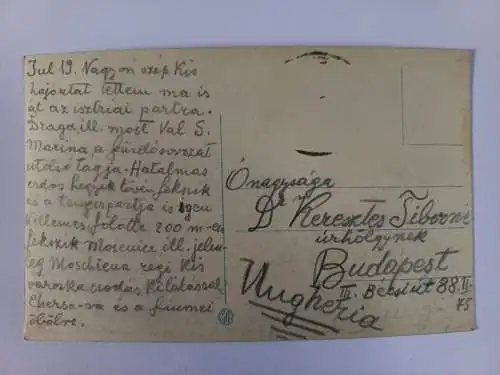 Jul 19. Nagyon szép kis
hajóutat tettem ma is
át az isztriai partra.
Draga, ill. most Val S.
Marina, a fürdősorozat
utolsó tagja. Hatalmas
erdős hegyek tövén fekszik
és a tengerpartja is igen
kellemes, fölötte 200 m-en
fekszik Mosenice ill. jelen-
leg Moschiena régi kis
városka csodás kilátással
Cherso-ra és a fiumei
öbölre.
Őnagysága
Dr Keresztes Tiborné
úrhölgynek
Budapest
III. Bécsi út 88.
Ungheria